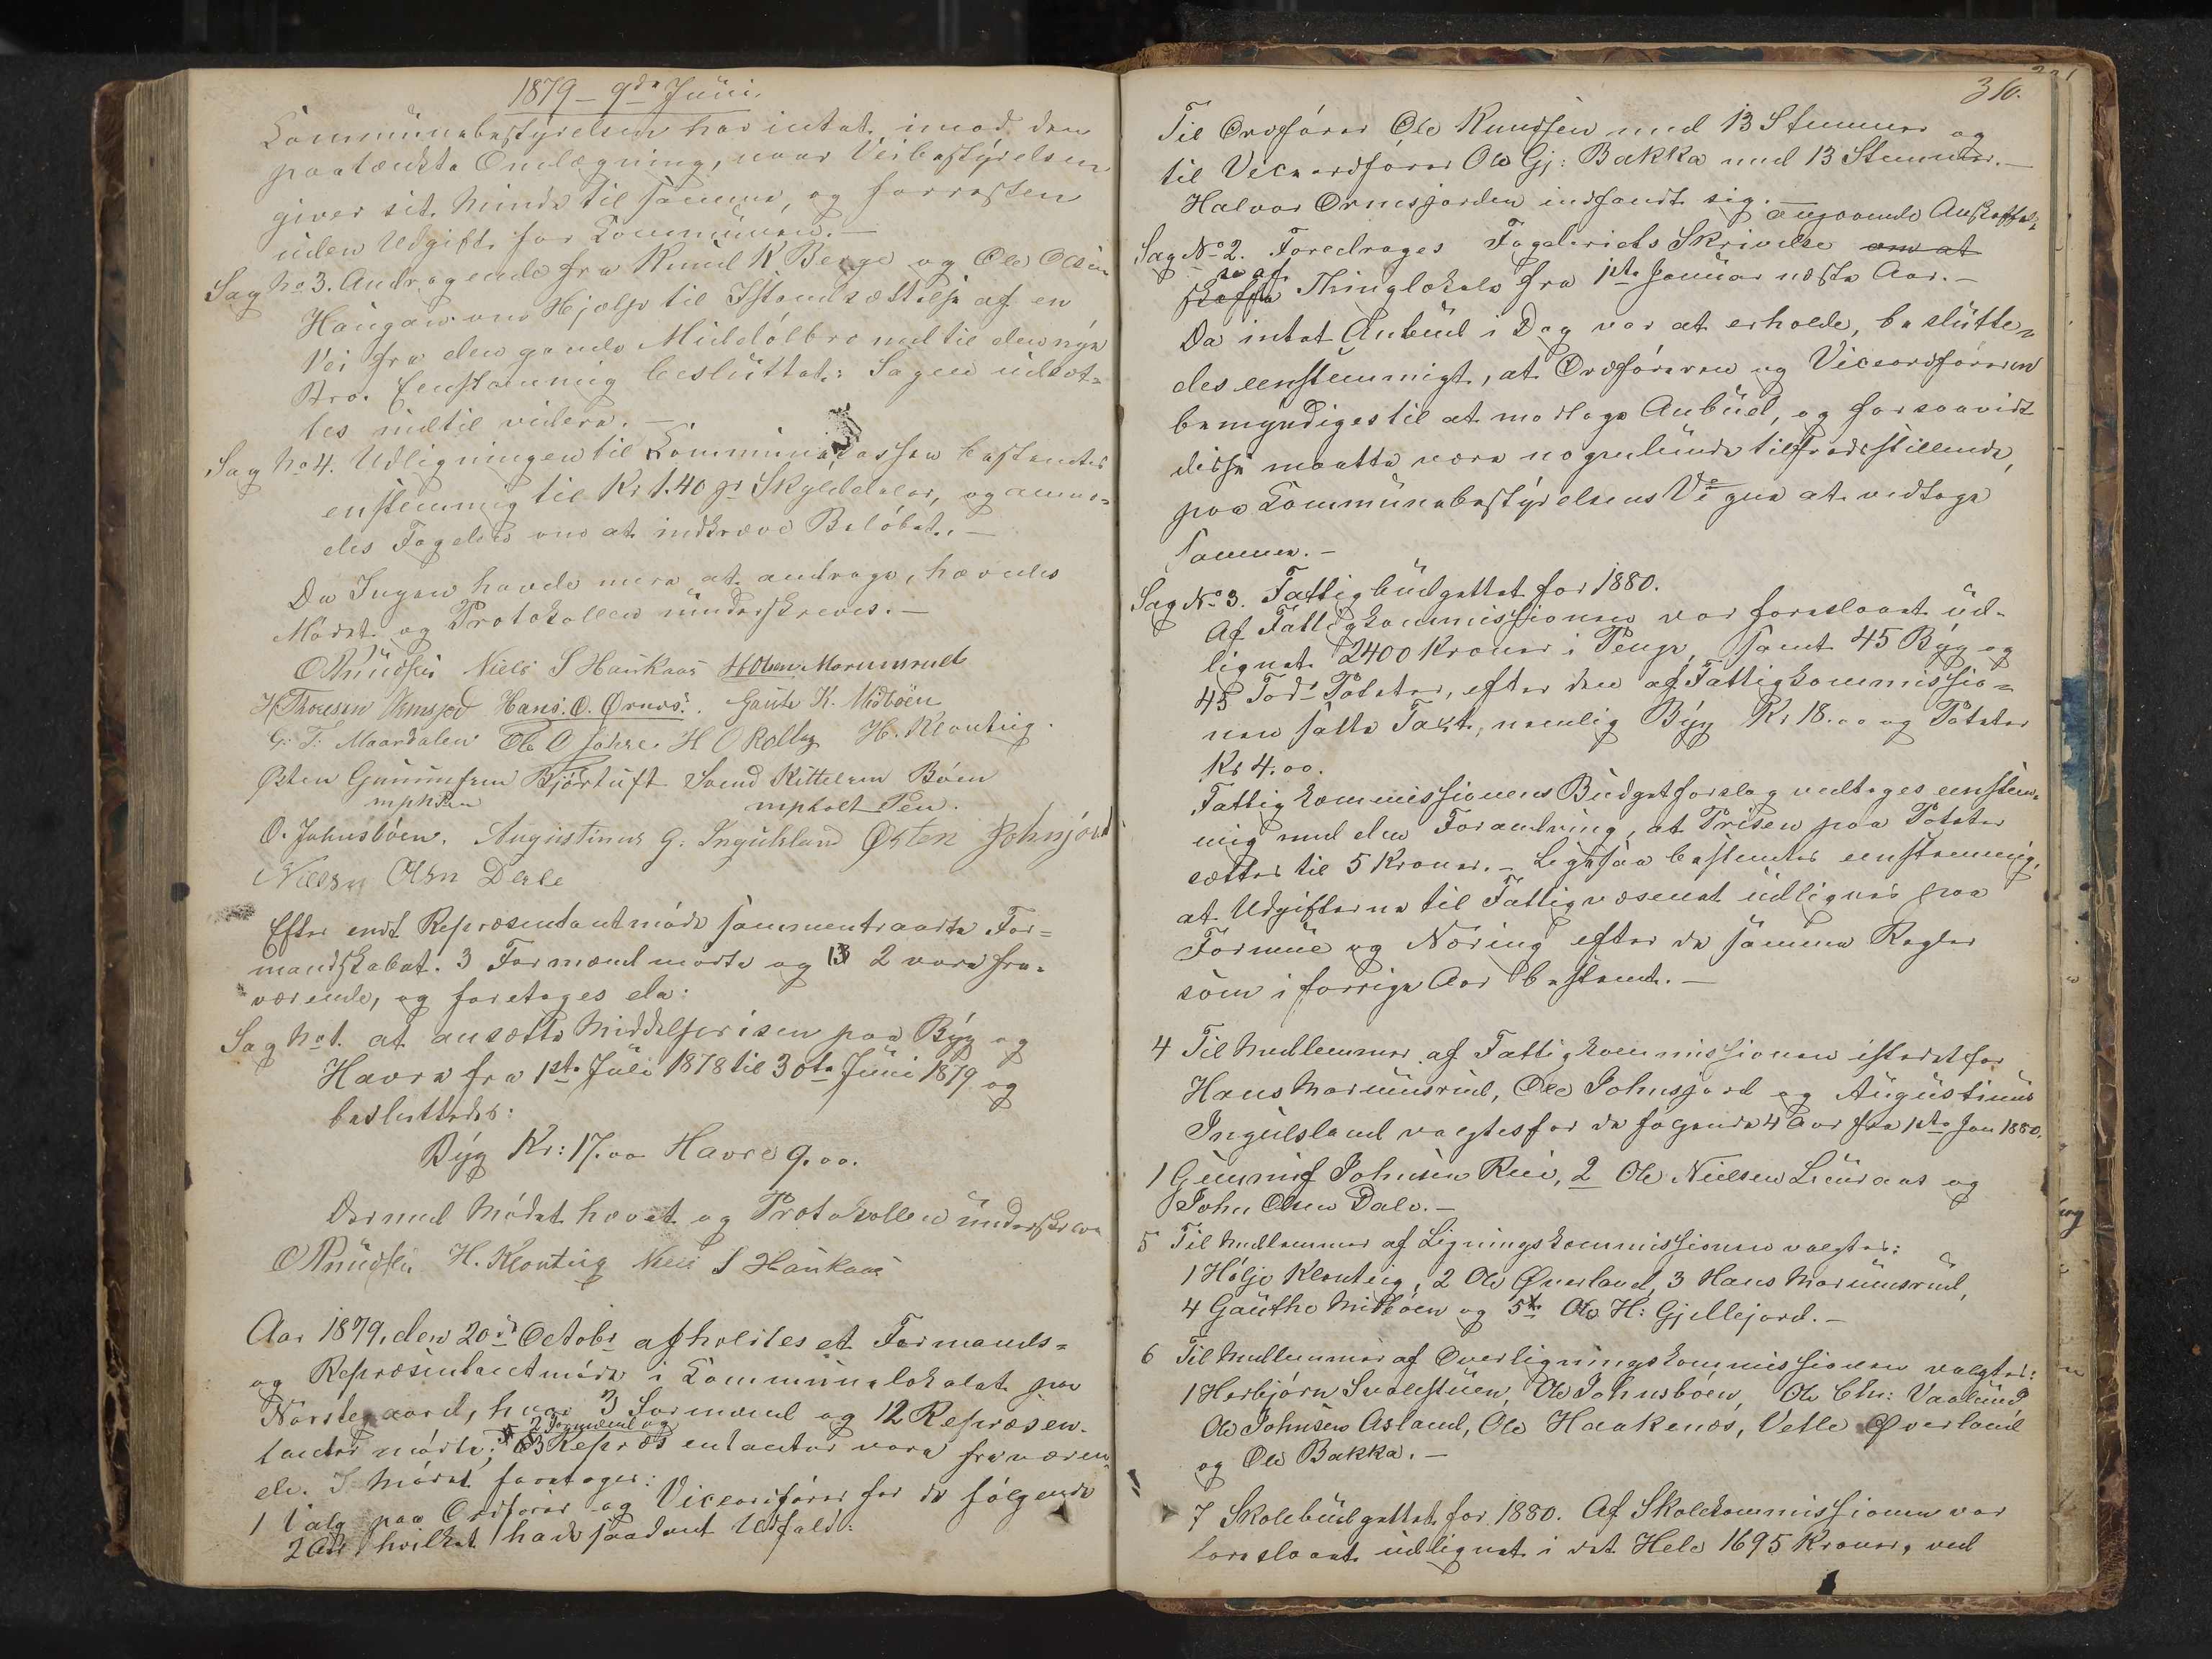 1879 – 9de Juni.
Communebestyrelsen har intet imod den
paatænkte Omlægning, naar Veibestyrelsen
giver sit Minde til samme, og forresten
uden Udgift for Communen. –
Sag No 3. Andragende fra Knud K Berge og Ole Olsen
Haugan om Hjælp til Istandsættelse af en
Vei fra den gamle Middølbro ned til den nye
Bro. Eenstemmig besluttet: Sagen udsæt-
tes indtil videre. –
Sag No 4. Udligningen til Communecassen bestemtes
enstemmig til Kr 1.40 pr Skylddaler, og anmo-
des Fogden om at indkræve Beløbet. –
Da Ingen havde mere at andrage, hævedes
Mødet og Protokollen underskreves. –
OKnudsen Niels S Haukaas HOlsen Marumsrud
H Thoresen Ormsjord Hans. O. Ørnes. Gaute K. Midbøen
G. T. Maardalen Ole O Johre. H O Rollag H. Klonteig.
Østen Gunnufsen Bjørtuft Svend Kittelsen Bøen
mphPen mpholt Pen.
O. Johnsbøen. Augustinus G. Ingulsland Østen Johnjord
Nielsen Olsn Dale
Efter endt Repræsentantmøde sammentraadte For-
mandskabet. 3 Formænd mødte og 2 vare fra-
værende, og foretoges da:
Sag No 1. at ansætte Middelprisen paa Byg og
Havre fra 1ste Juli 1878 til 30te Juni 1879 og
besluttedes:
Byg Kr: 17.00 Havre 9.00.
Dermed Mødet hævet og Protokollen underskreven
OKnudsen H. Klonteig Niels S Haukaas
Aar 1879, den 20de Octobr afholdtes et Formands-
og Repræsentantmøde i Communelokalet paa
Norstegaard, hvor 3 Formænd og 12 Repræsen-
2 Formænd og
tanter mødte; 3 Repræsentanter vare fraværen-
de. I Mødet foretoges:
1 Valg paa Ordfører og Viceordfører for de følgende
2 Aar hvilket havde saadant Udfald:
310.
Til Ordfører Ole Knudsen med 13 Stemmer og
til Viceordfører Ole Gj: Bakka med 13 Stemmer. –
Halvor Ormsjorden indfandt sig. –
angaaende Anskaffel-
Sag No 2. Foredrages Fogderiets Skrivelse om at
se af
skaffe Thinglokale fra 1ste Januar næste Aar. –
Da intet Anbud i Dag var at erholde, beslutte-
des eenstemmigt, at Ordføreren og Viceordføreren
bemyndiges til at modtage Anbud, og forsaavidt
disse maatte være nogenlunde tilfredsstillende,
paa Communebestyrelsens Vegne at vedtage
samme. –
Sag No 3. Fattigbudgettet for 1880.
Af Fattigkommissionen var foreslaaet ud-
lignet 2400 Kroner i Penge, samt 45 Byg og
45 Tdr Poteter, efter den af Fattigkommissio-
nen satte Taxt, nemlig Byg Kr 18.00 og Poteter
Kr 4.00.
Fattigkommissionens Budgetforslag vedtoges eenstem-
mig med den Forandring, at Prisen paa Poteter
sættes til 5 Kroner. – Ligesaa bestemtes eenstemmig,
at Udgifterne til Fattigvæsenet udlignes paa
Formue og Næring efter de samme Regler
som i forrige Aar bestemt. –
4 Til Medlemmer af Fattigkommissionen istedetfor
Hans Marumsrud, Ole Johnsjord og Augustinus
Ingulsland valgtes for de følgende 4 Aar fra 1ste Jan 1880.
1 Gunnuf Johnsen Rui, 2 Ole Nielsen Luraas og
John Olsen Dale. –
5 Til Medlemmer af Ligningskommissionen valgtes:
1 Høljo Klonteig, 2 Ole Øverland, 3 Hans Marumsrud,
4 Gauthe Midbøen og 5te Ole H: Gjellejord. –
6 Til Medlemmer af Overligningskommissionen valgtes:
1 Herbjørn Svalestuen, Ole Johnsbøen, Ole Chr: Vaalund
Ole Johnsen Asland, Ole Haakenæs, Vetle Øverland
og Ole Bakka. –
7 Skolebudgettet for 1880. Af Skolekommissionen var
foreslaaet udlignet i det Hele 1695 Kroner, ved